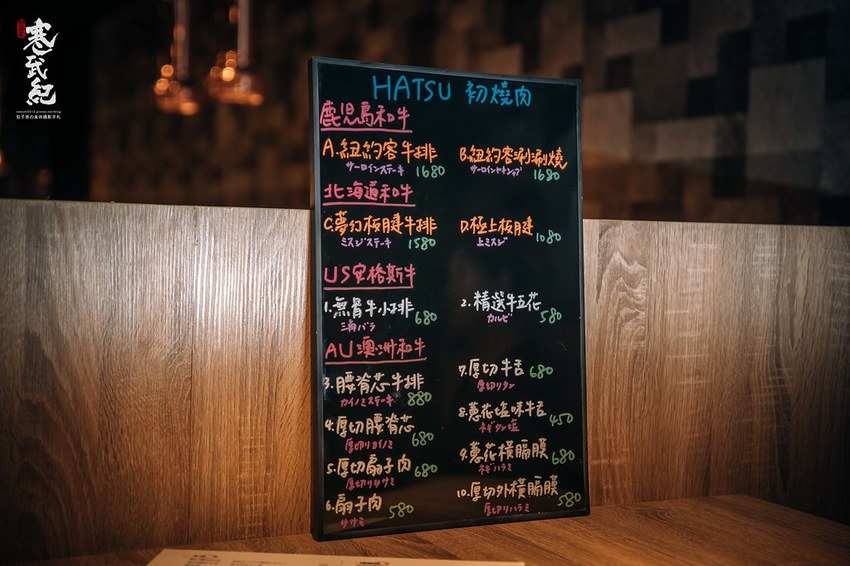 寒武紀
HATSU 初燒肉
鹿児島和牛
A.紐約客牛排 1680
サーロインステーキ
B.紐約客涮涮燒 1680
サーロインヤキシャブ
北海道和牛
C.夢幻板腱牛排 1580
ミスジステーキ
D.極上板腱 1080
上ミスジ
US安格斯牛
1.無骨牛小排 680
三角バラ
2.精選牛五花 580
カルビ
AU澳洲和牛
3.腰脊芯牛排 880
カイノミステーキ
4.厚切腰脊芯 680
厚切りカイノミ
5.厚切扇子肉 680
厚切りササミ
6.扇子肉 580
ササミ
7.厚切牛舌 680
厚切りタン
8.蔥花塩味牛舌 450
ネギタン塩
9.蔥花橫膈膜 680
ネギハラミ
10.厚切外橫膈膜 580
厚切りハラミ